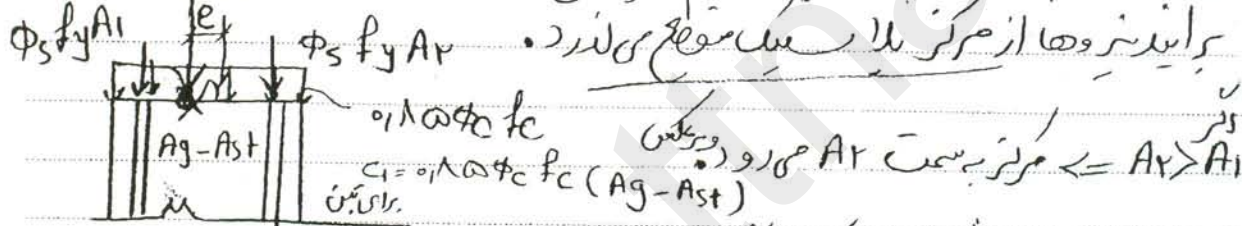 برآیند نیروها از مرکز پلاستیک مقطع می‌گذرد.
Φs fy A1
e
Φs fy A۲
۰,۸۵Φc fc
Ag-Ast
اگر A۲>A1 => مرکز به سمت A۲ می‌رود وبرعکس.
C1=۰,۸۵Φc fc (Ag-Ast)
برای بتن